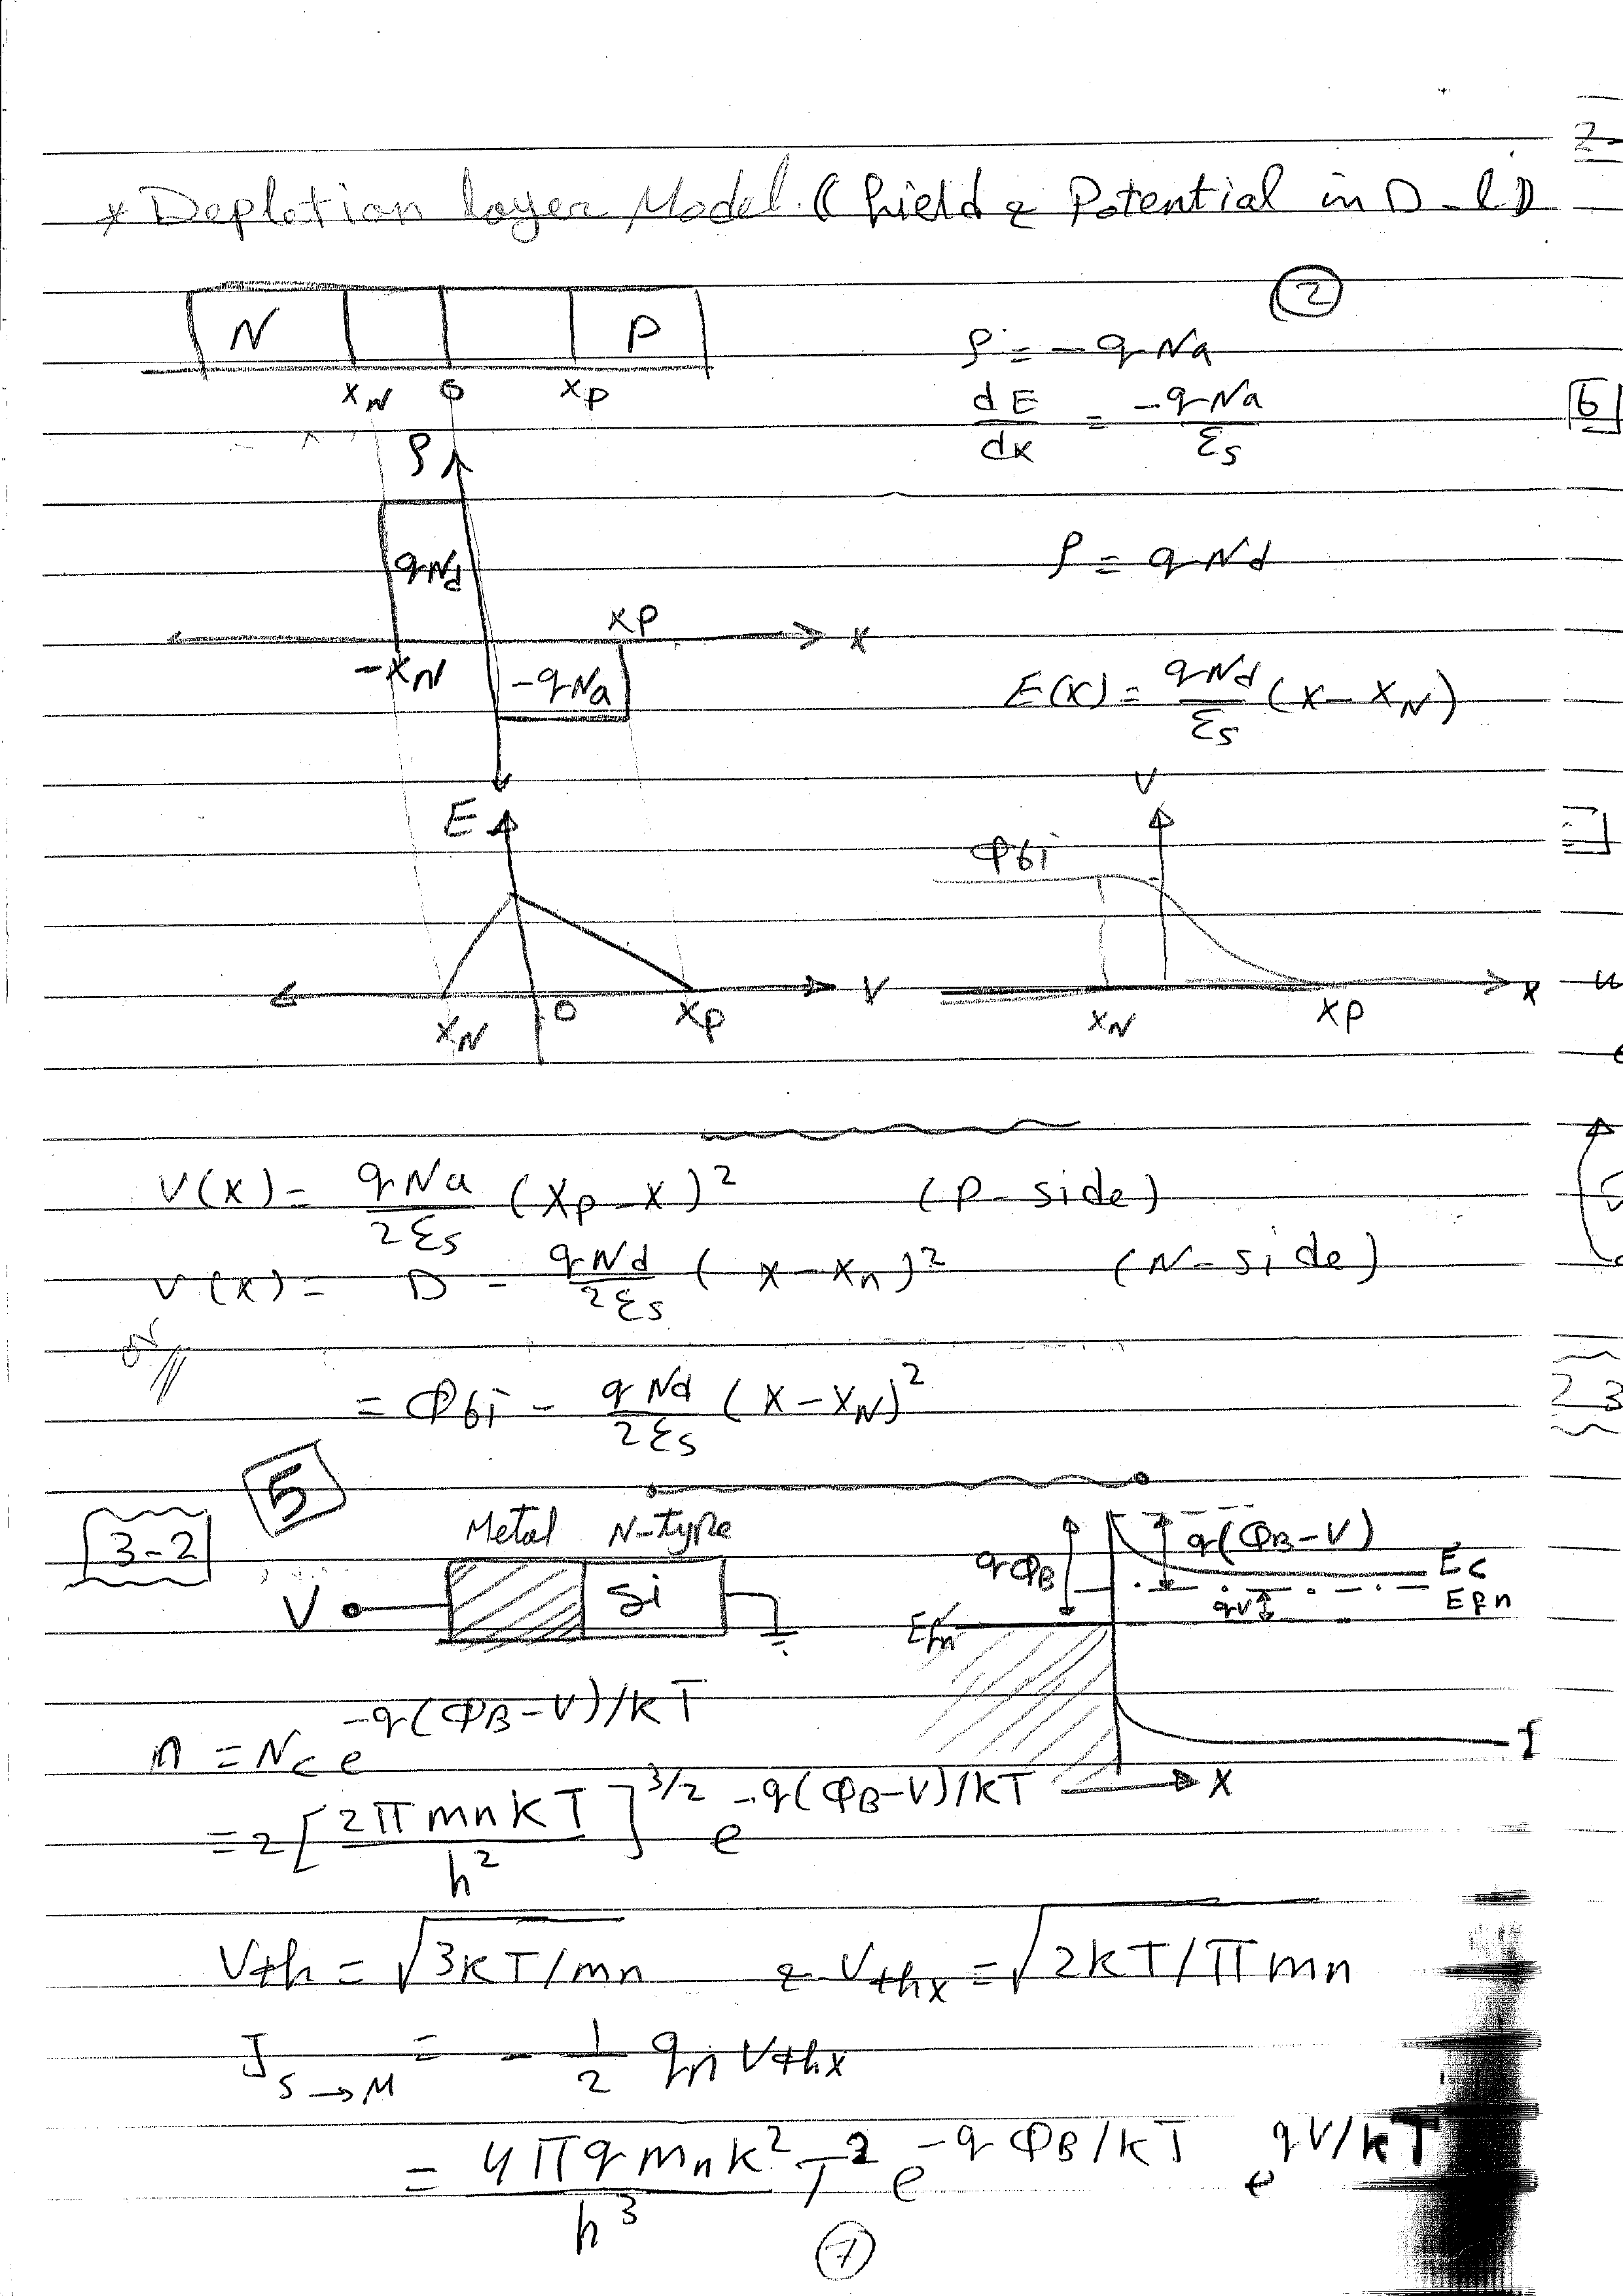 * Depletion layer Model. (field & Potential in D-l)
②
N P
xN 0 xP
ρ = -qNa
dE/dx = -qNa/εs
6
ρ
qNd
ρ = qNd
xP
x
-xN
-qNa
E(x) = qNd/εs (x - xN)
E
V
φbi
xN 0 xP V
xN xP x
V(x) = qNa/2εs (xp - x)² (P-side)
V(x) = D - qNd/2εs (x - xn)² (N-side)
or
= φbi - qNd/2εs (x - xN)²
2 3
5
3-2
Metal N-type
V Si
qφB q(φB-V) Ec
qV Efn
Efm
n = Nc e^-q(φB-V)/kT
x
= 2 [2π mn kT / h²]^3/2 e^-q(φB-V)/kT
Vth = √3kT/mn & Vthx = √2kT/π mn
J S→M = -1/2 qn Vthx
= 4π q mn k²/h³ T² e^-qφB/kT e^qV/kT
⑦